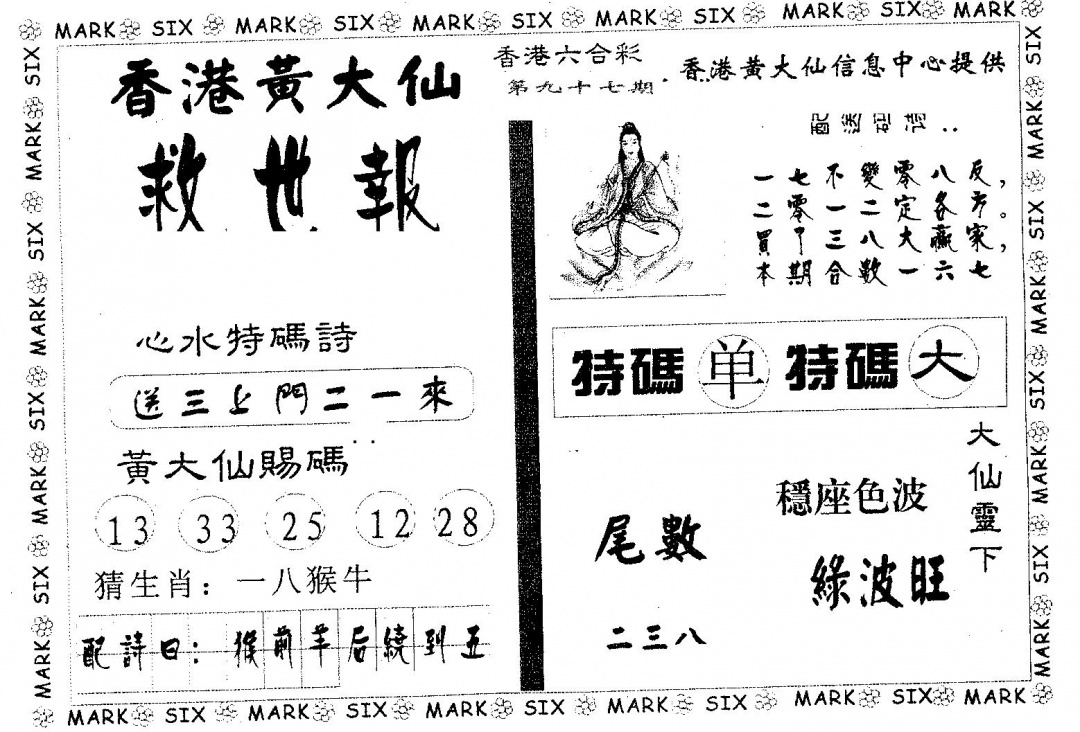 MARK SIX MARK SIX MARK SIX MARK SIX MARK SIX MARK
香港黃大仙
救世報
心水特碼詩
送三上門二一來
黃大仙賜碼
13 33 25 12 28
猜生肖：一八猴牛
配詩曰：猴前羊后繞到五
香港六合彩
第九十七期
香港黃大仙信息中心提供
配送
一七不變零八反，
二零一二定各方。
買中三八大贏家，
本期合數一六七
特碼 单 特碼 大
大仙靈下
穩座色波
綠波旺
尾數
二三八
SIX MARK SIX MARK SIX MARK SIX MARK
SIX MARK SIX MARK SIX MARK SIX MARK
MARK SIX MARK SIX MARK SIX MARK SIX MARK SIX MARK